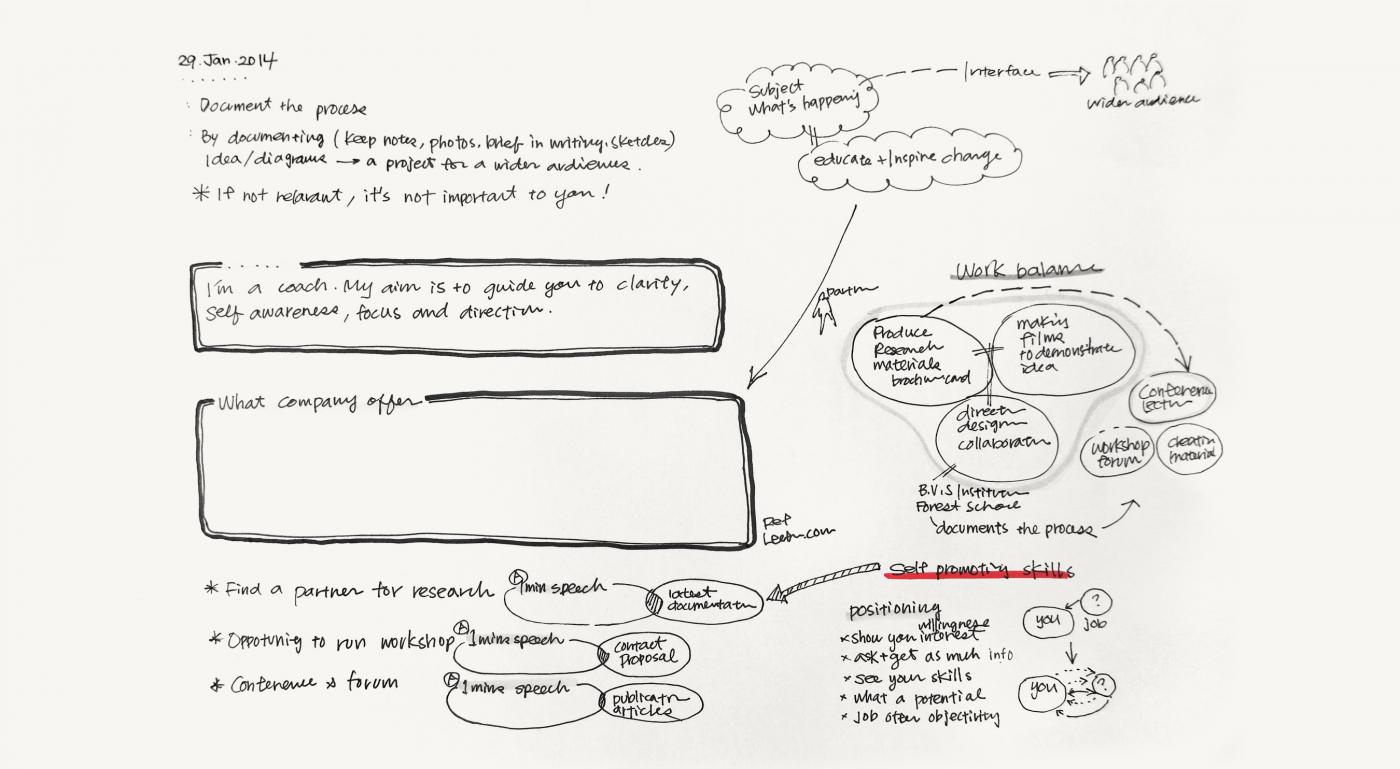 29. Jan. 2014
: Document the process
: By documenting (keep notes, photos, brief in writing, sketches)
Idea/diagrams → a project for a wider audience.
* If not relavant, it's not important to you!
Subject
What's happening
Interface
wider audience
educate + Inspire change
I'm a coach. My aim is to guide you to clarity,
Self awareness, focus and direction.
What company offer
Ref
Work balance
Produce
Research
materials
making
films
to demonstrate
idea
direct
design
collaboratn
Conference
Lectur
workshop
forum
creatin
material
B.V.S Institution
Forest School
documents the process
* Find a partner for research
A 1min speech
latest
documentatn
* Oppotunity to run workshop
A 1mins speech
contact
proposal
* Conference & forum
A 1mins speech
publicatn
articles
Self promoting skills
positioning
willingness
× show your interest
× ask + get as much info
× see your skills
× what a potential
× Job offer objectivity
you
?
job
you
?